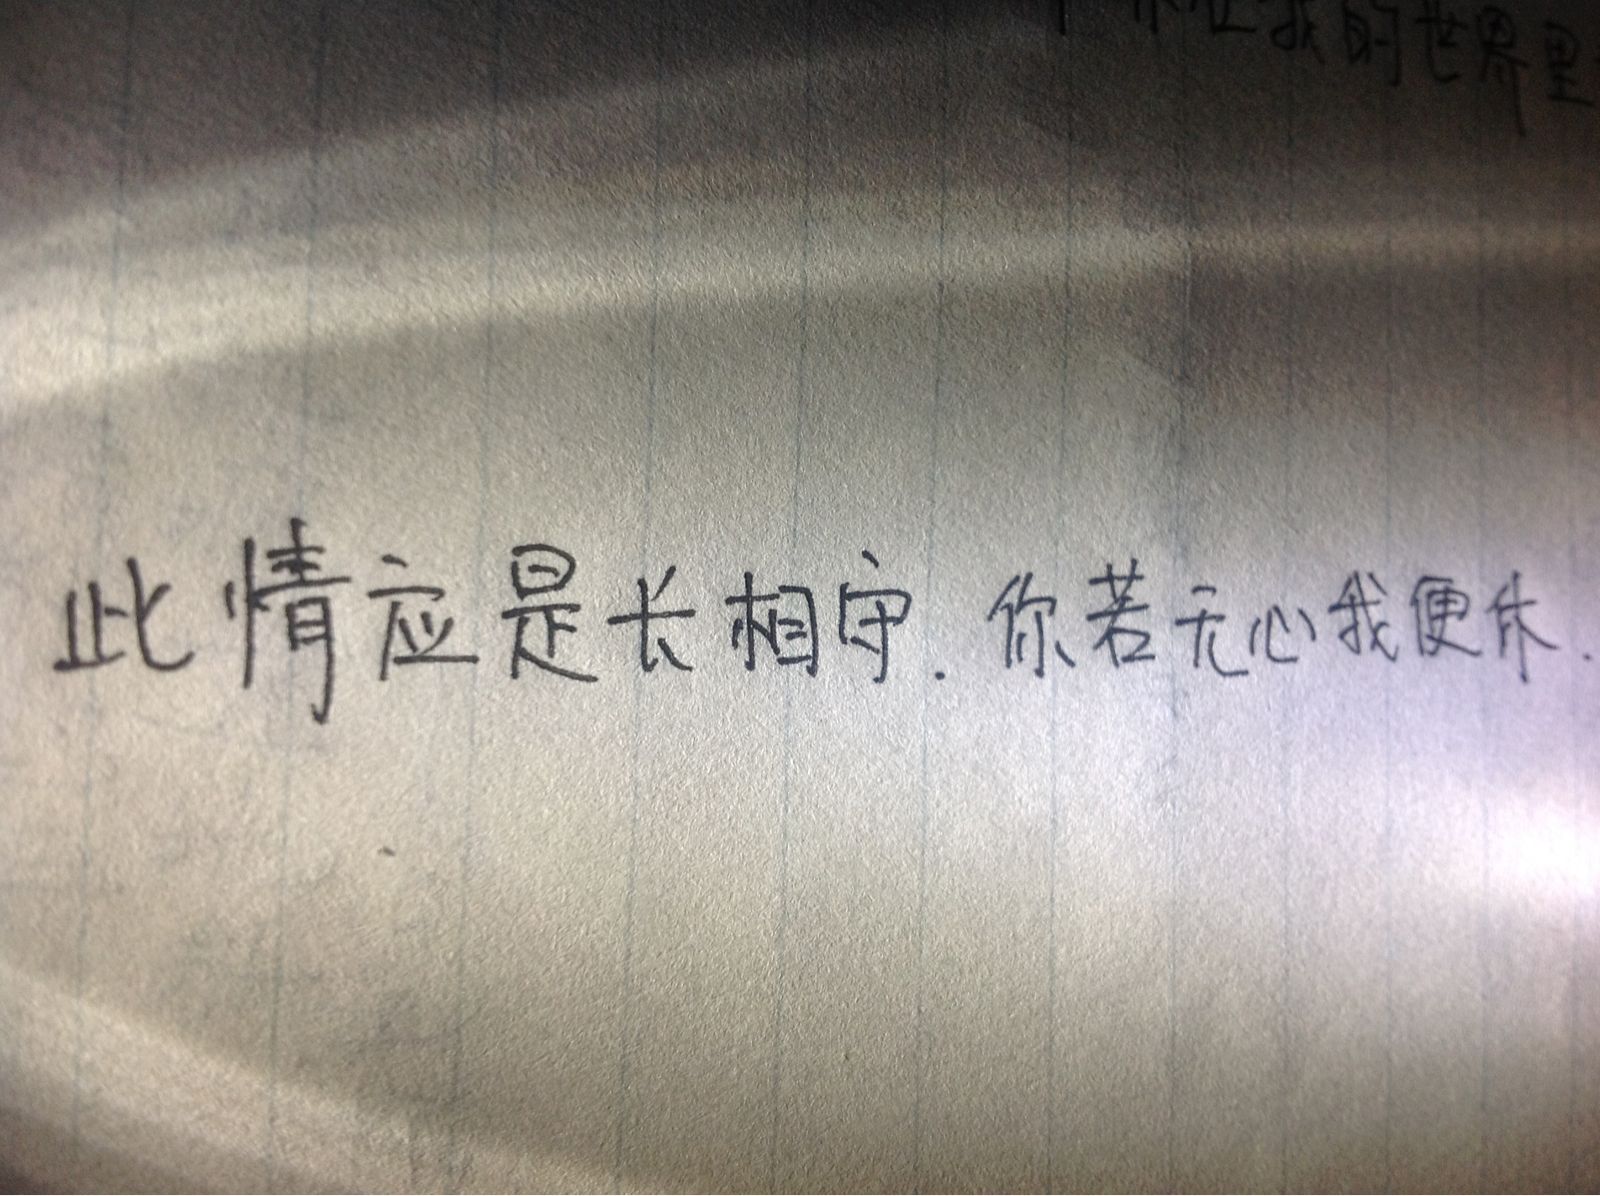 在我的世界里
此情应是长相守.你若无心我便休.